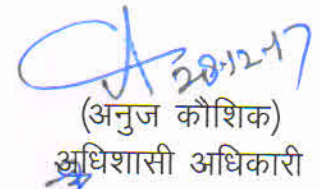 28-12-17
(अनुज कौशिक)
अधिशासी अधिकारी